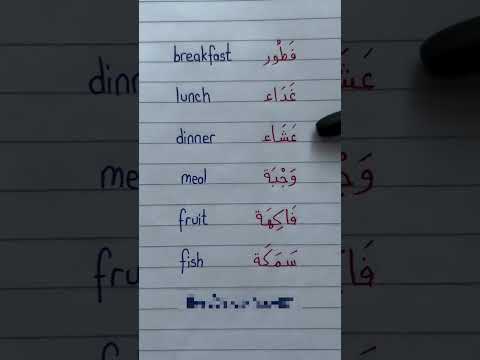 breakfast فَطْور
lunch غَدَاء
dinner عَشَاء
meal وَجْبَة
fruit فَاكِهَة
fish سَمَكَة